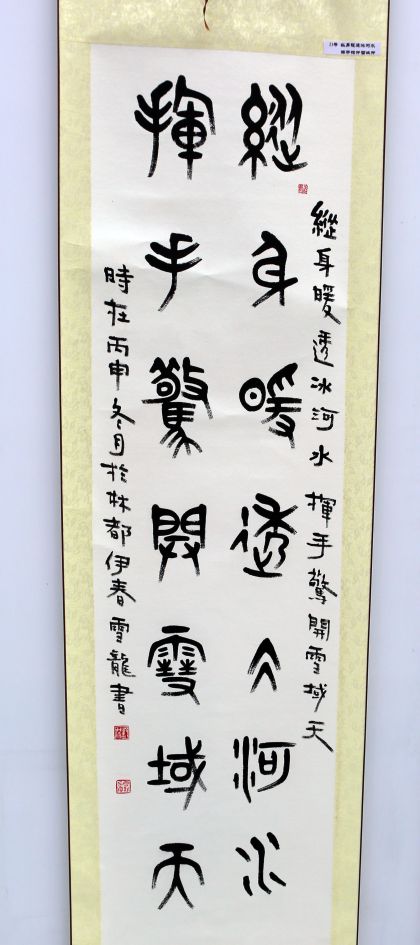 縱身暖透冰河水 揮手驚開雪域天
縱身暖透仌河水
揮手驚開雪域天
時在丙申冬月於林都伊春雪龍書